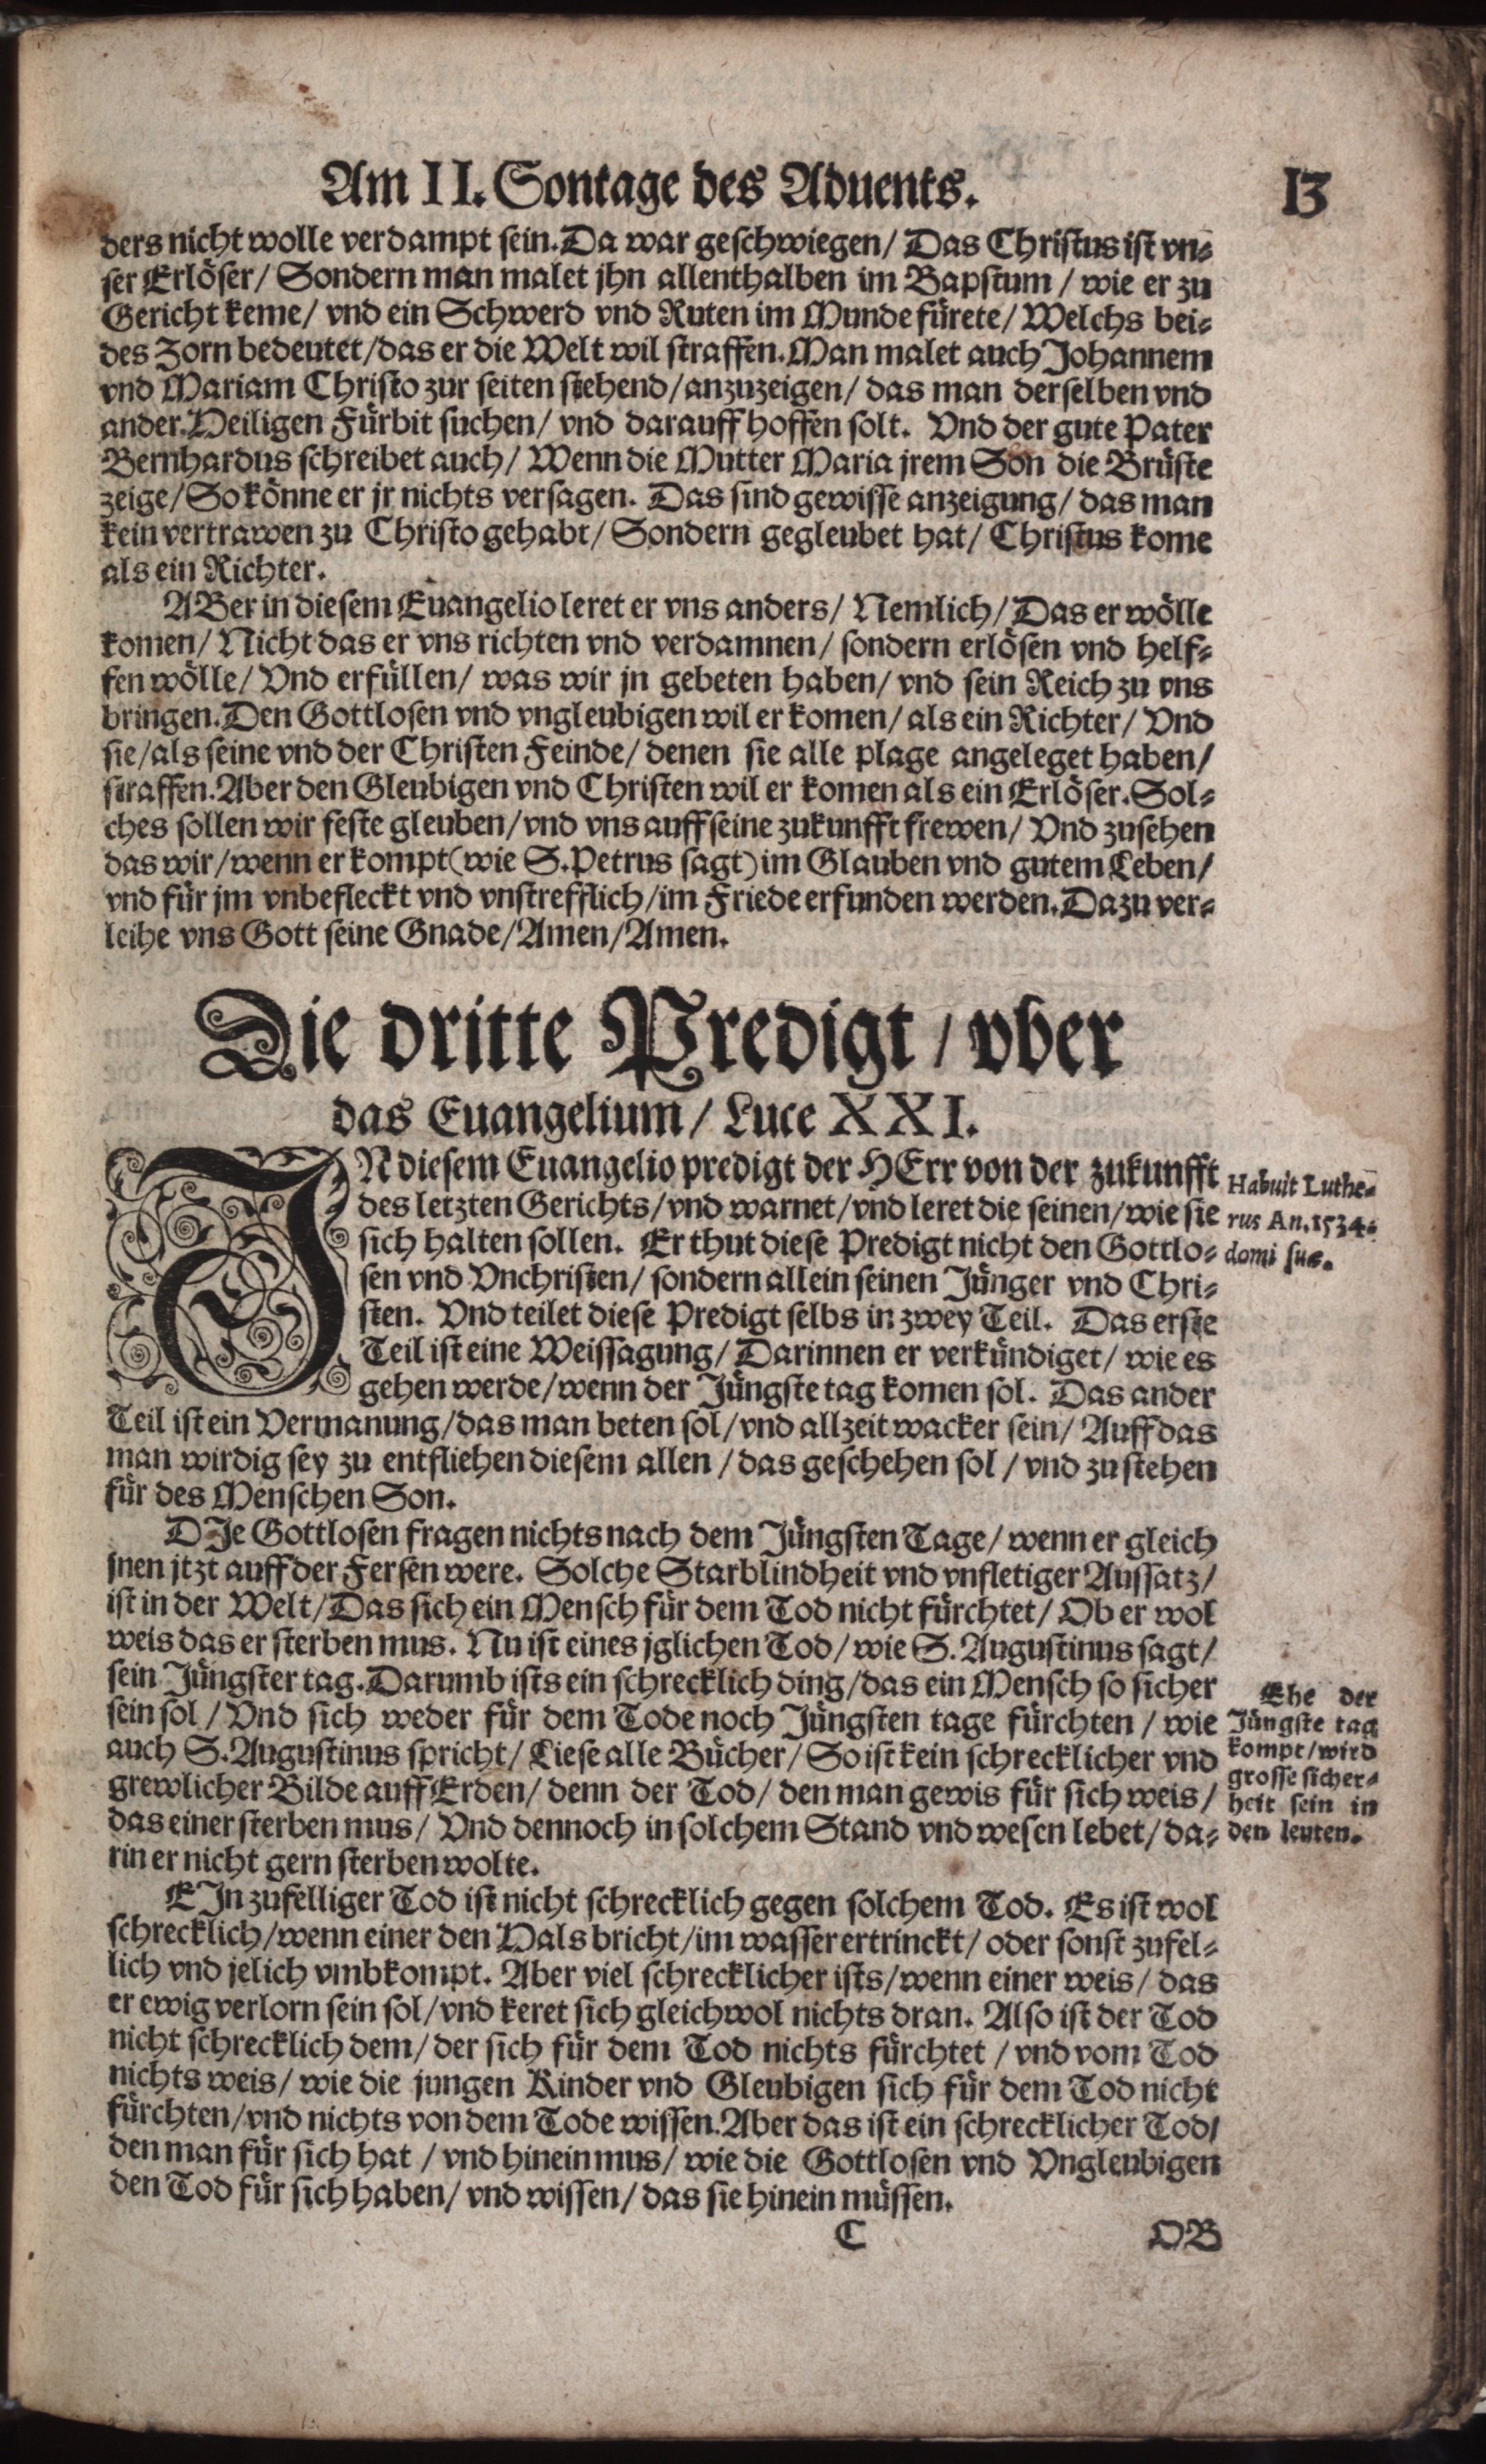 Am II. Sontage des Aduents. 13
ders nicht wolle verdampt sein. Da war geschwiegen/ Das Christus ist vn⸗
ser Erlöser/ Sondern man malet jhn allenthalben im Bapstum/ wie er zu
Gericht keme/ vnd ein Schwerd vnd Ruten im Munde fürete/ Welchs bei⸗
des Zorn bedeutet/ das er die Welt wil straffen. Man malet auch Johannem
vnd Mariam Christo zur seiten stehend/ anzuzeigen/ das man derselben vnd
ander. Heiligen Fürbit suchen/ vnd darauff hoffen solt. Vnd der gute Pater
Bernhardus schreibet auch/ Wenn die Mutter Maria jrem Son die Brüste
zeige/ So könne er jr nichts versagen. Das sind gewisse anzeigung/ das man
kein vertrawen zu Christo gehabt/ Sondern gegleubet hat/ Christus kome
als ein Richter.
ABer in diesem Euangelio leret er vns anders/ Nemlich/ Das er wölle
komen/ Nicht das er vns richten vnd verdamnen/ sondern erlösen vnd helf⸗
fen wölle/ Vnd erfüllen/ was wir jn gebeten haben/ vnd sein Reich zu vns
bringen. Den Gottlosen vnd vngleubigen wil er komen/ als ein Richter/ Vnd
sie/ als seine vnd der Christen Feinde/ denen sie alle plage angeleget haben/
straffen. Aber den Gleubigen vnd Christen wil er komen als ein Erlöser. Sol⸗
ches sollen wir feste gleuben/ vnd vns auff seine zukunfft frewen/ Vnd zusehen
das wir/ wenn er kompt (wie S. Petrus sagt) im Glauben vnd gutem Leben/
vnd für jm vnbefleckt vnd vnstrefflich/ im Friede erfunden werden. Dazu ver⸗
leihe vns Gott seine Gnade/ Amen/ Amen.
Die dritte Predigt/ vber
das Euangelium/ Luce XXI.
IN diesem Euangelio predigt der HErr von der zukunfft
des letzten Gerichts/ vnd warnet/ vnd leret die seinen/ wie sie
sich halten sollen. Er thut diese Predigt nicht den Gottlo⸗
sen vnd Vnchristen/ sondern allein seinen Jünger vnd Chri⸗
sten. Vnd teilet diese Predigt selbs in zwey Teil. Das erste
Teil ist eine Weissagung/ Darinnen er verkündiget/ wie es
gehen werde/ wenn der Jüngste tag komen sol. Das ander
Teil ist ein Vermanung/ das man beten sol/ vnd allzeit wacker sein/ Auff das
man wirdig sey zu entfliehen diesem allen/ das geschehen sol/ vnd zu stehen
für des Menschen Son.
Habuit Luthe⸗
rus An. 1534.
domi suæ.
DIe Gottlosen fragen nichts nach dem Jüngsten Tage/ wenn er gleich
jnen jtzt auff der Fersen were. Solche Starblindheit vnd vnfletiger Aussatz/
ist in der Welt/ Das sich ein Mensch für dem Tod nicht fürchtet/ Ob er wol
weis das er sterben mus. Nu ist eines jglichen Tod/ wie S. Augustinus sagt/
sein Jüngster tag. Darumb ists ein schrecklich ding/ das ein Mensch so sicher
sein sol/ Vnd sich weder für dem Tode noch Jüngsten tage fürchten/ wie
auch S. Augustinus spricht/ Liese alle Bücher/ So ist kein schrecklicher vnd
grewlicher Bilde auff Erden/ denn der Tod/ den man gewis für sich weis/
das einer sterben mus/ Vnd dennoch in solchem Stand vnd wesen lebet/ da⸗
rin er nicht gern sterben wolte.
Ehe der
Jüngste tag
kompt/ wird
grosse sicher⸗
heit sein in
den leuten.
EIn zufelliger Tod ist nicht schrecklich gegen solchem Tod. Es ist wol
schrecklich/ wenn einer den Hals bricht/ im wasser ertrinckt/ oder sonst zufel⸗
lich vnd jelich vmbkompt. Aber viel schrecklicher ists/ wenn einer weis/ das
er ewig verlorn sein sol/ vnd keret sich gleichwol nichts dran. Also ist der Tod
nicht schrecklich dem/ der sich für dem Tod nichts fürchtet/ vnd vom Tod
nichts weis/ wie die jungen Kinder vnd Gleubigen sich für dem Tod nicht
fürchten/ vnd nichts von dem Tode wissen. Aber das ist ein schrecklicher Tod/
den man für sich hat/ vnd hinein mus/ wie die Gottlosen vnd Vngleubigen
den Tod für sich haben/ vnd wissen/ das sie hinein müssen.
C OB